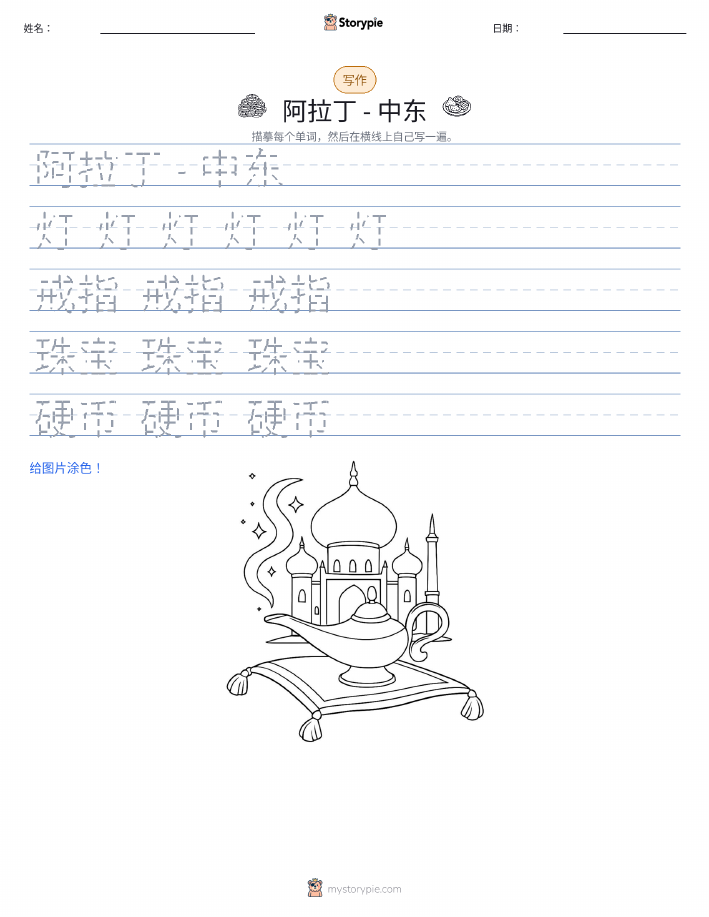 姓名： Storypie 日期：
写作
阿拉丁 - 中东
描摹每个单词，然后在横线上自己写一遍。
阿拉丁 - 中东
灯 灯 灯 灯 灯 灯
戒指 戒指 戒指
珠宝 珠宝 珠宝
硬币 硬币 硬币
给图片涂色！
mystorypie.com